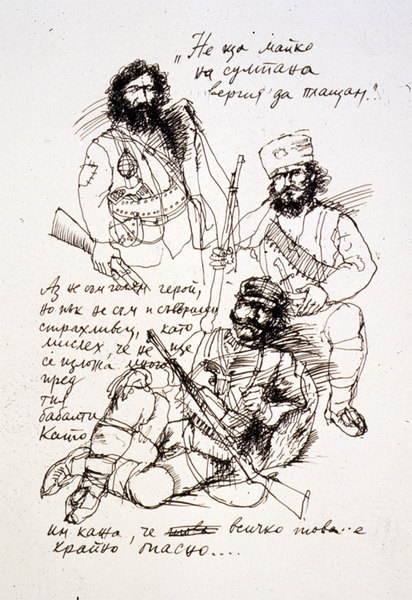 „Не ща майко
на султана
вергия да плащам."
Аз не съм голям герой,
но пък не съм и съвършен
страхливец, като
мислех, че не ще
се изложа много
пред
тия
бабаити
Като
им кажа, че това всичко това..е
крайно опасно....